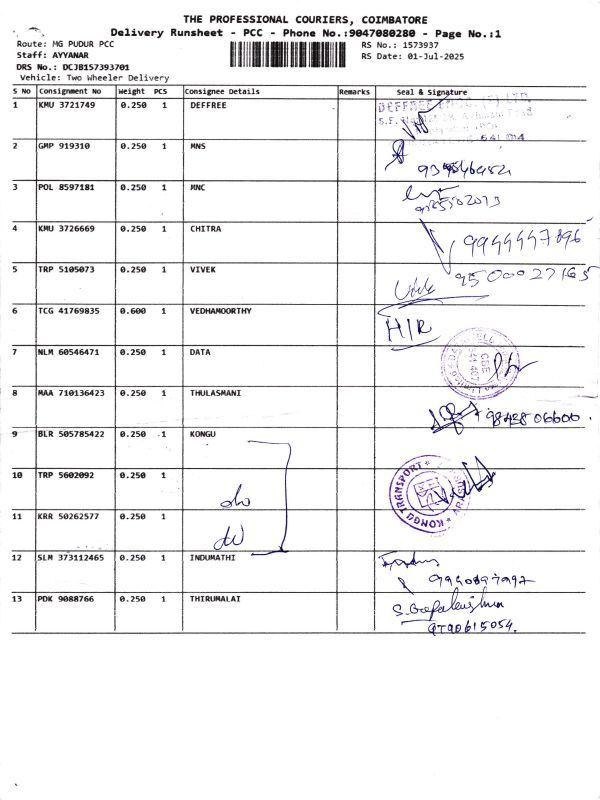 THE PROFESSIONAL COURIERS, COIMBATORE
Delivery Runsheet - PCC - Phone No.:9047080280 - Page No.:1
Route: MG PUDUR PCC
RS No.: 1573937
Staff: AYYANAR
RS Date: 01-Jul-2025
DRS No.: DCJB157393701
Vehicle: Two Wheeler Delivery
S No Consignment No Weight PCS Consignee Details Remarks Seal & Signature
1 KMU 3721749 0.250 1 DEFFREE
641 014
2 GMP 919310 0.250 1 MNS
3 POL 8597181 0.250 1 MNC
4 KMU 3726669 0.250 1 CHITRA
5 TRP 5105073 0.250 1 VIVEK 9500027165
6 TCG 41769835 0.600 1 VEDHAMOORTHY H/R
7 NLM 60546471 0.250 1 DATA
CBE
641 407
8 MAA 710136423 0.250 1 THULASMANI
9842806600.
9 BLR 505785422 0.250 1 KONGU
10 TRP 5602092 0.250 1
KONGU TRANSPORT
11 KRR 50262577 0.250 1
12 SLM 373112465 0.250 1 INDUMATHI
13 PDK 9088766 0.250 1 THIRUMALAI S. Gopalakrishnan
9790615054.